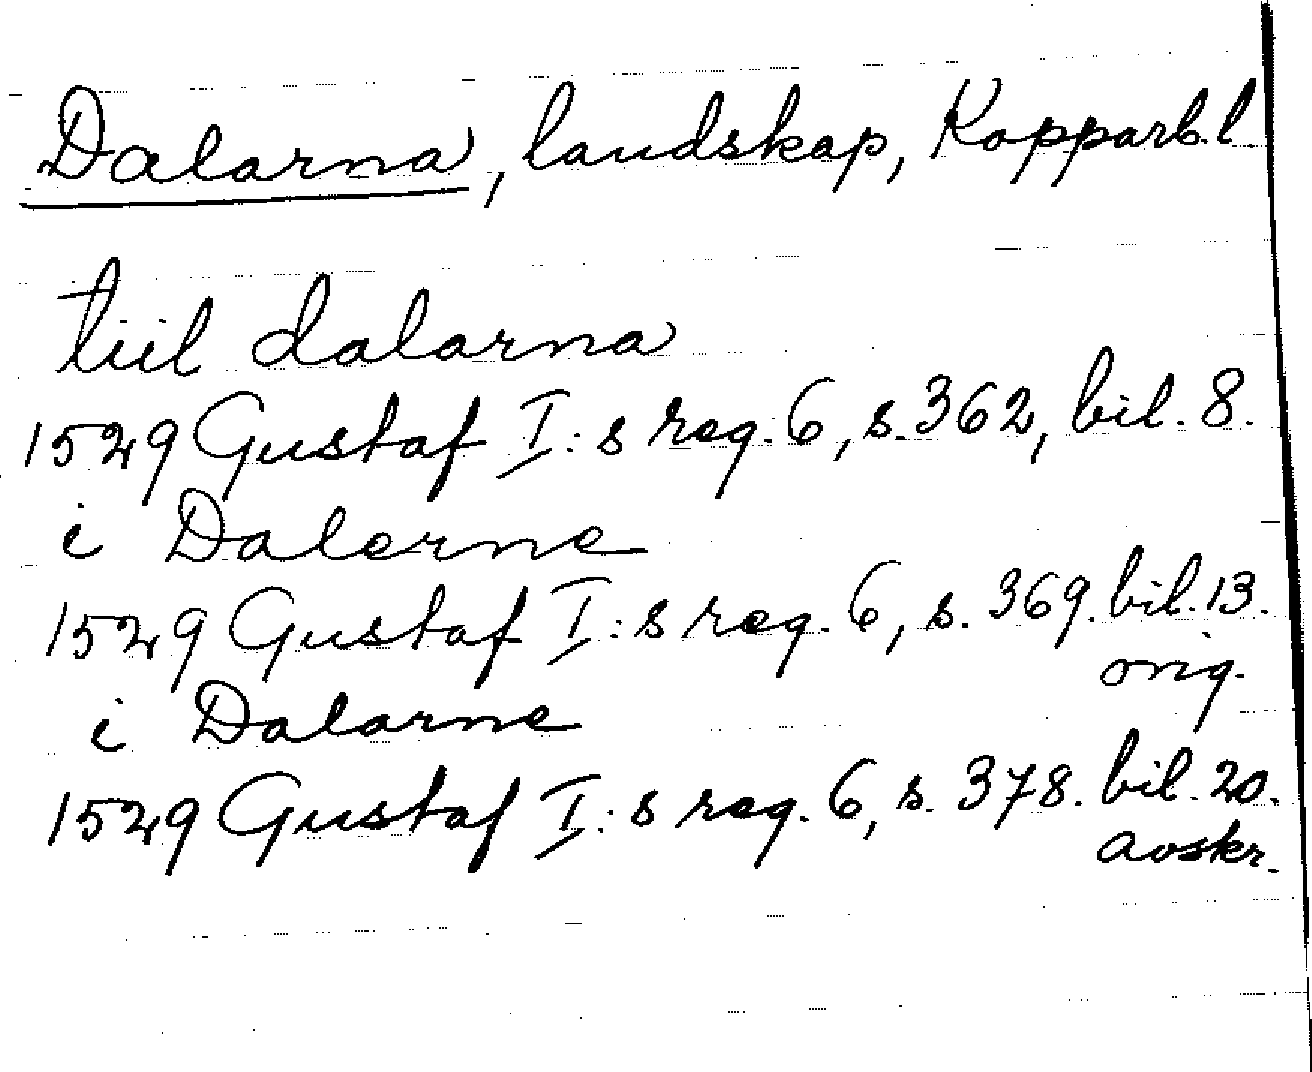 Dalarna, landskap, Kopparb.l
tiil dalarna
1529 Gustaf I:s reg. 6, s. 362, bil. 8.
i Dalerne
1529 Gustaf I:s reg. 6, s. 369. bil. 13.
orig.
i Dalarne
1529 Gustaf I:s reg. 6, s. 378. bil. 20.
avskr.